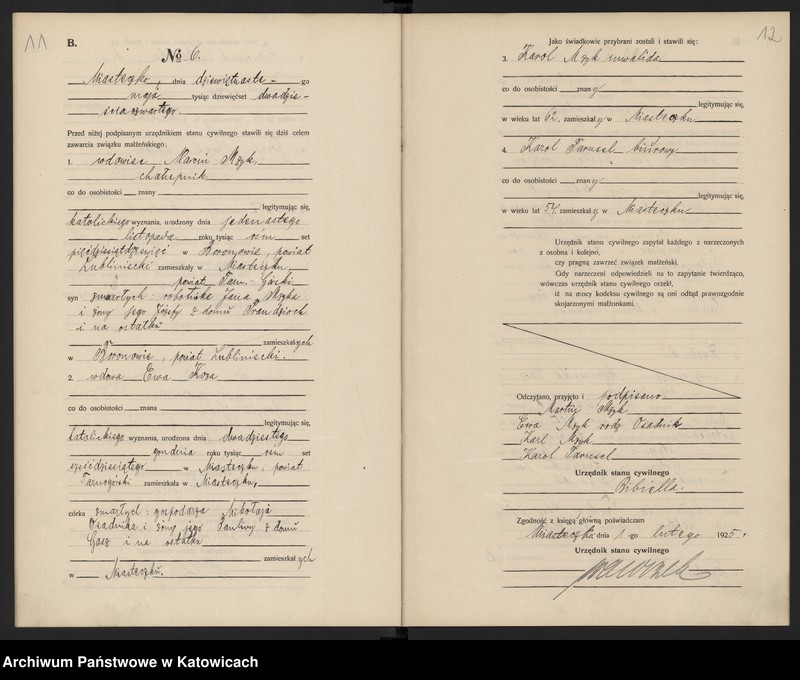 11
B.
No 6.
Miasteczko, dnia dziewiętnaste - go
maja tysiąc dziewięćset dwadzie -
ścia czwartego.
Przed niżej podpisanym urzędnikiem stanu cywilnego stawili się dziś celem
zawarcia związku małżeńskiego:
1. wdowiec Marcin Mzyk,
chałupnik
co do osobistości znany
legitymując się,
katolickiego wyznania, urodzony dnia jedenastego
listopada roku tysiąc ośm set
pięćdziesiąt dziewięć w Boronowie, powiat
Lubliniecki zamieszkały w Miasteczku,
powiat Tarn.-Górski
syn zmarłych: robotnika Jana Mzyka
i żony jego Józefy z domu
i na ostatku
zamieszkałych
w Boronowie, powiat Lubliniecki.
2. wdowa Ewa Koza
co do osobistości znana
legitymując się,
katolickiego wyznania, urodzona dnia dwudziestego
grudnia roku tysiąc ośm set
sześćdziesiątego w Miasteczku, powiat
Tarnogórski zamieszkała w Miasteczku,
córka zmarłych: gospodarza Mikołaja
Osadnika i żony jego Pauliny z domu
i na ostatku
zamieszkałych
w Miasteczku.
12
Jako świadkowie przybrani zostali i stawili się:
3. Karol Mzyk inwalida
co do osobistości znany
legitymując się,
w wieku lat 62. zamieszkały w Miasteczku
4. Karol Parusel biurowy
co do osobistości znany
legitymując się,
w wieku lat 54, zamieszkały w Miasteczku
Urzędnik stanu cywilnego zapytał każdego z narzeczonych
z osobna i kolejno,
czy pragną zawrzeć związek małżeński.
Ody narzeczeni odpowiedzieli na to zapytanie twierdząco,
wówczas urzędnik stanu cywilnego orzekł,
iż na mocy kodeksu cywilnego są oni odtąd prawozgodnie
skojarzonymi małżonkami.
Odczytano, przyjęto i podpisano
Martin Mzyk
Ewa Mzyk rodz Osadnik
Karl Mzyk
Karol Parusel
Urzędnik stanu cywilnego
Bibiella.
Zgodność z księgą główną poświadczam
Miasteczko dnia 1 go lutego 1925 r
Urzędnik stanu cywilnego
Archiwum Państwowe w Katowicach